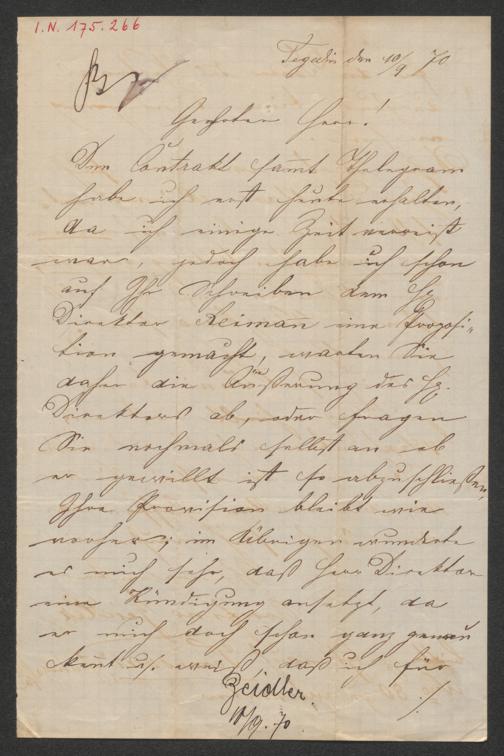 I.N. 175.266
Szegedin den 10/9 70
Geehrter Herr!
Den Contrakt sammt Thelegram
habe ich erst heute erhalten,
da ich einige Zeit verreist
war, jedoch habe ich schon
auf Ihr Schreiben dem H.
Direktor Reimann eine Proposi=
tion gemacht, warten Sie
daher die Äußerung des H.
Direktors ab, oder fragen
Sie nochmals selbst an ob
er gewillt ist so abzuschließen,
Ihre Provision bleibt wie
vorher; im Übrigen wunderte
es mich sehr, daß Herr Direktor
eine Kündigung ansetzt, da
er mich doch schon ganz genau
kennt u. weiß, daß ich für
Zeidler
10/9. 70